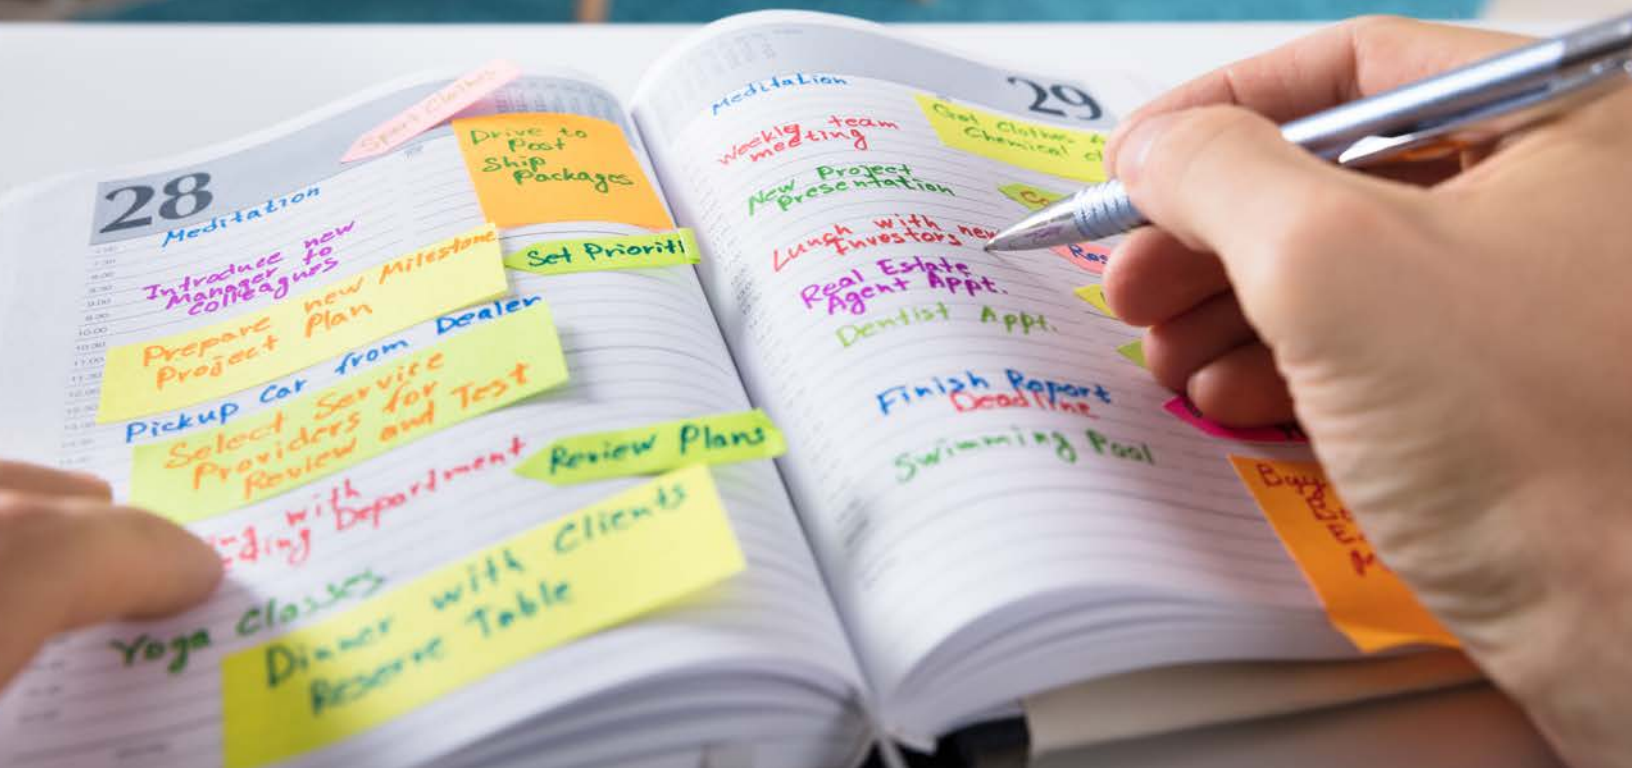 28
Meditation
Drive to
Post
Ship
Packages
Introduce new
Manager to
colleagues
Set Prioriti
Prepare new Milestone
Project Plan
Pickup Car from Dealer
Select Service
Providers for
Review and Test
with
Department
Review Plans
Yoga Classes
Dinner with Clients
Reserve Table
29
Meditation
Weekly team
meeting
New Project
Presentation
Lunch with new
Investors
Real Estate
Agent Appt.
Dentist Appt.
Finish Report
Deadline
Swimming Pool